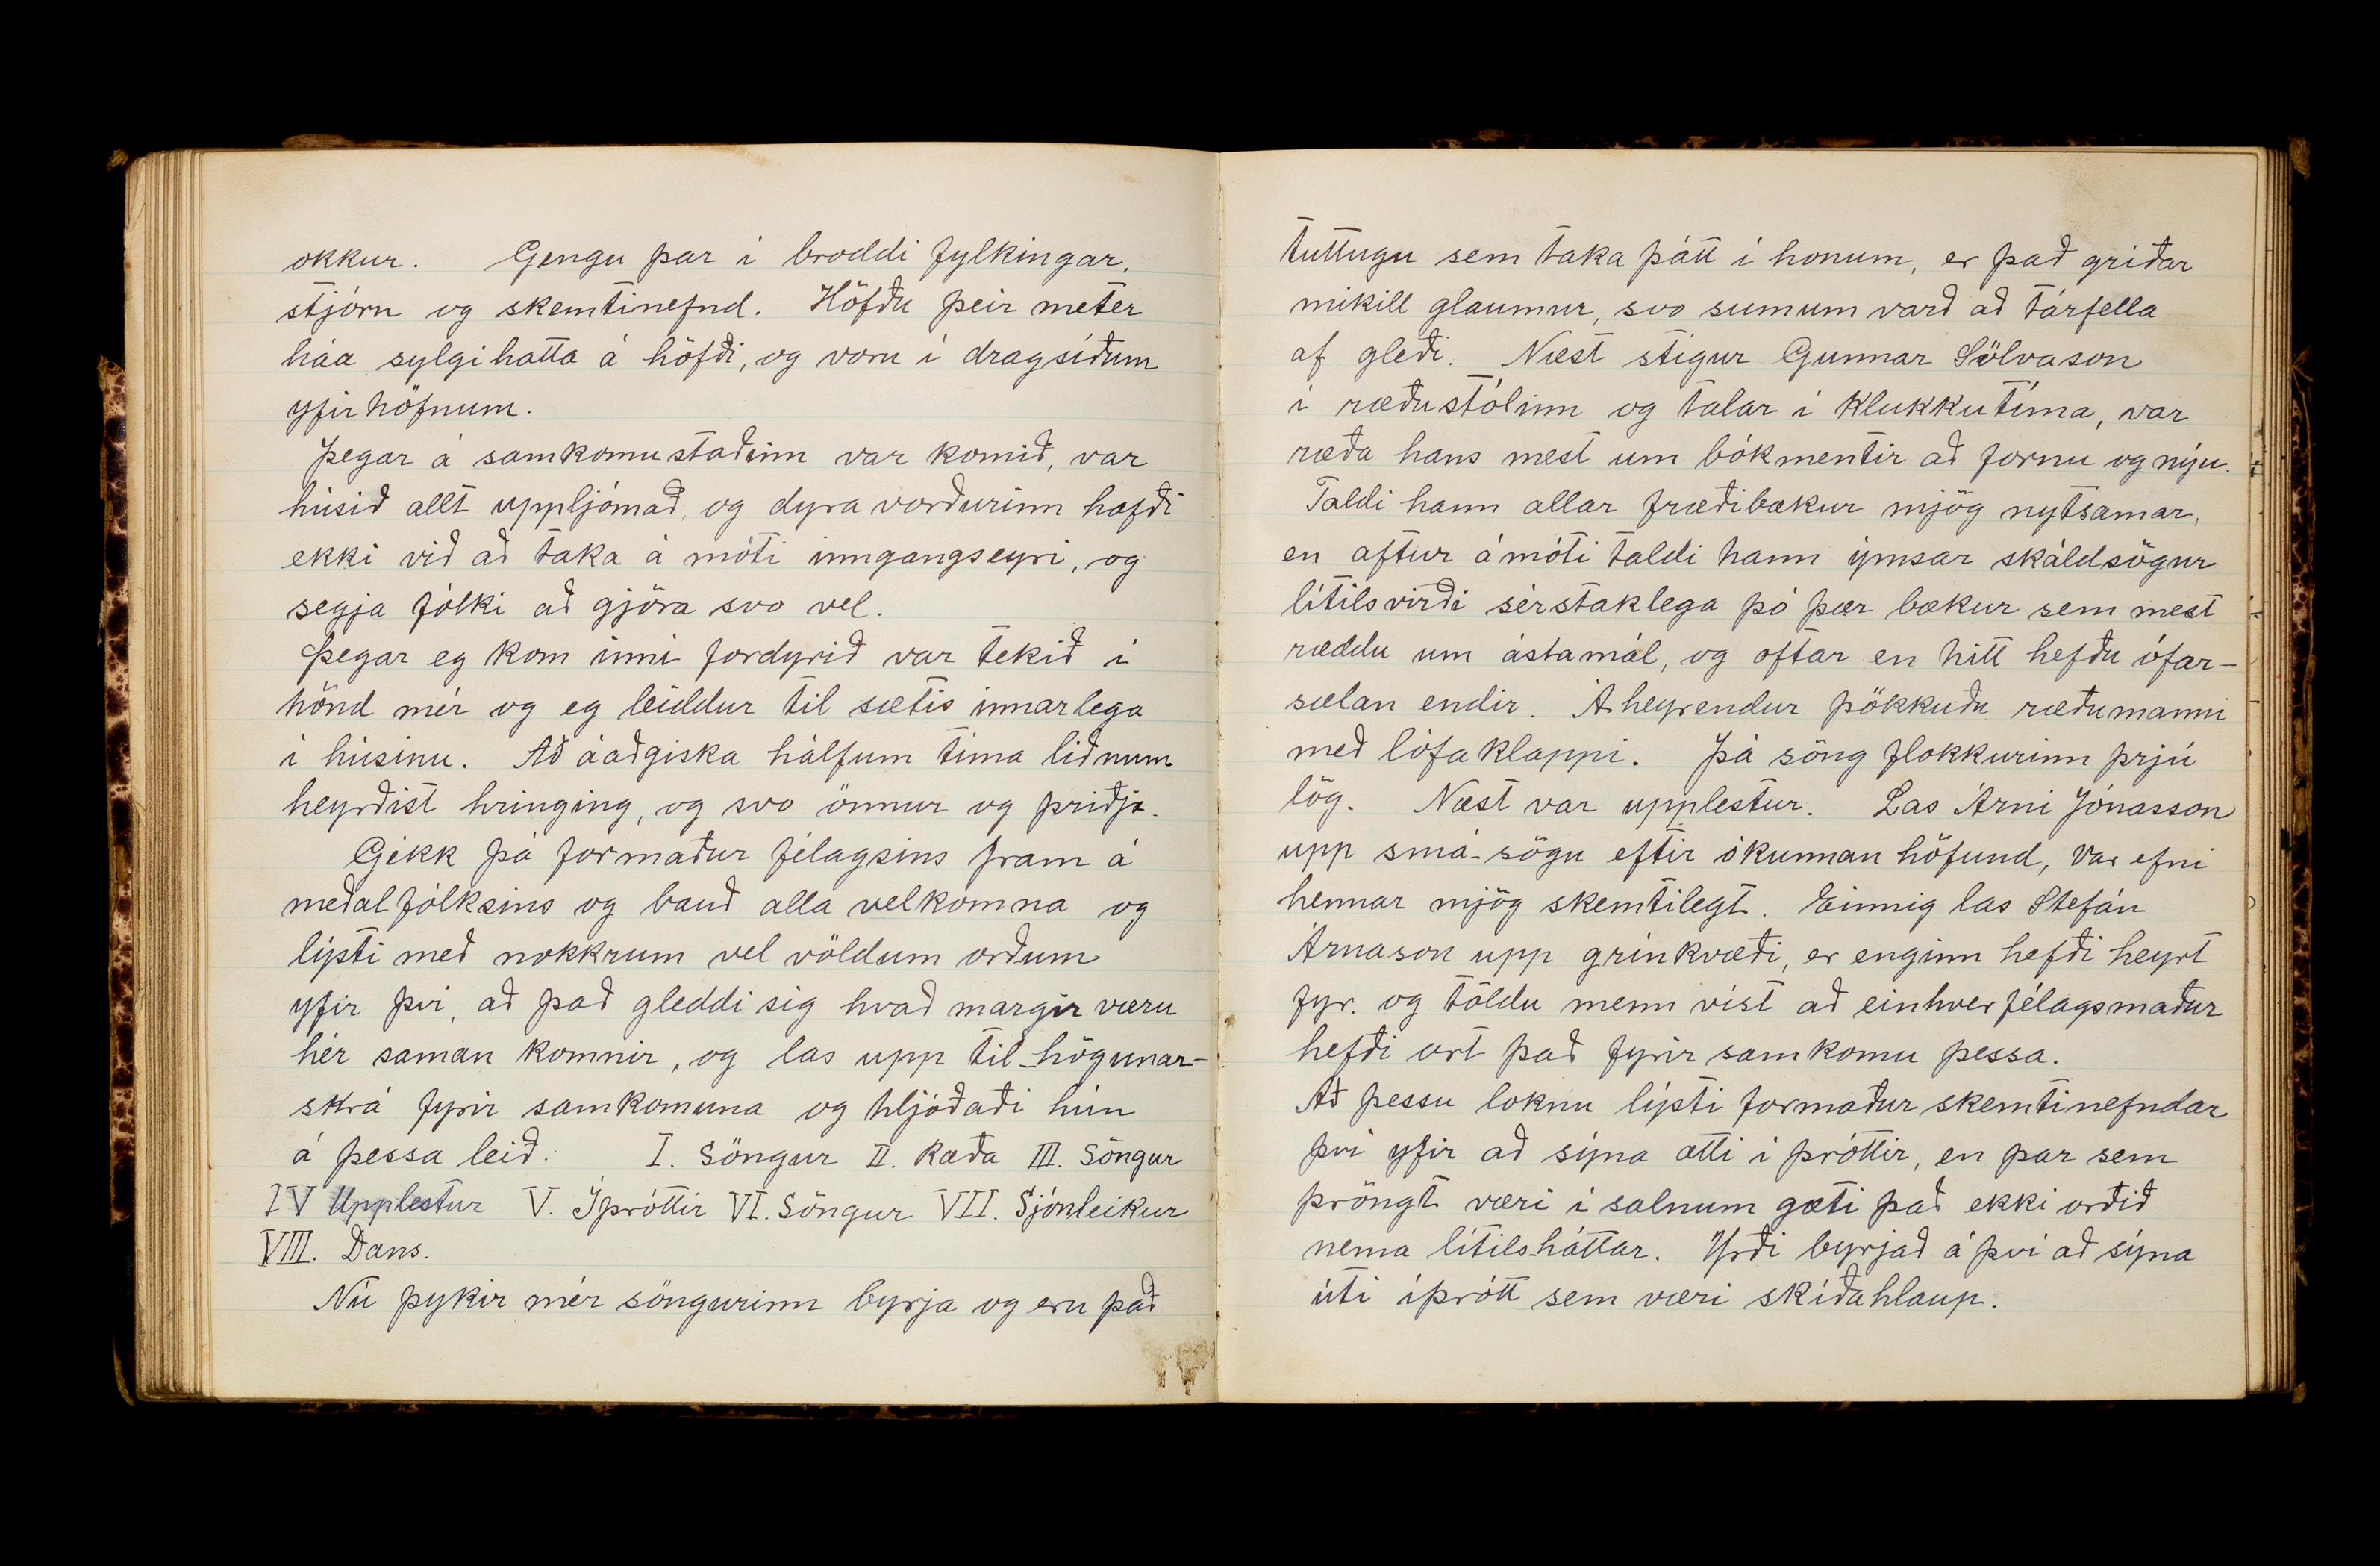 okkur. Gengu þar í broddi fylkingar,
stjórn og skemtinefnd. Höfðu þeir meter
háa sylgihatta á höfði, og voru í dragsíðum
yfirhöfnum.
Þegar á samkomustaðinn var komið, var
húsið allt uppljómað, og dyravorðurinn hafði
ekki við að taka á móti inngangseyri, og
segja fólki að gjöra svo vel.
Þegar eg kom inní fordyrið var tekið í
hönd mér og eg leiddur til sætis innarlega
í húsinu. Að áaðgiska hálfum tíma liðnum
heyrðist hringing, og svo önnur og þriðja.
Gekk þá formaður félagsins fram á
meðal fólksins og bauð alla velkomna og
lýsti með nokkrum vel völdum orðum
yfir því, að það gleddi sig hvað margir væru
hér saman komnir, og las upp til-högunar-
skrá fyrir samkomuna og hljóðaði hún
á þessa leið. I. Söngur II. Ræða III. Söngur
IV Upplestur V. Íþróttir VI. Söngur VII. Sjónleikur
VIII. Dans.
Nú þykir mér söngurinn byrja og eru það
tuttugu sem taka þátt í honum, er það gríðar
mikill glaumur, svo sumum varð að tárfella
af gleði. Næst stígur Gunnar Sölvason
í ræðustólinn og talar í klukkutíma, var
ræða hans mest um bókmentir að fornu og nýu.
Taldi hann allar fræðibækur mjög nytsamar,
en aftur ámóti taldi hann ýmsar skáldsögur
lítilsvirði sérstaklega þó þær bækur sem mest
ræddu um ástamál, og oftar en hitt hefðu ófar-
sælan endir. Áheyrendur þökkuðu ræðumanni
með lófaklappi. Þá söng flokkurinn þrjú
lög. Næst var upplestur. Las Árni Jónasson
upp smá-sögu eftir ókunnan höfund, var efni
hennar mjög skemtilegt. Einnig las Stefán
Árnason upp grínkvæði, er enginn hefði heyrt
fyr. og töldu menn víst að einhver félagsmaður
hefði ort það fyrir samkomu þessa.
Að þessu loknu lýsti formaður skemtinefndar
því yfir að sýna ætti íþróttir, en þar sem
þröngt væri í salnum gæti það ekki orðið
nema lítilsháttar. Yrði byrjað á því að sýna
úti íþrótt sem væri skíðahlaup.